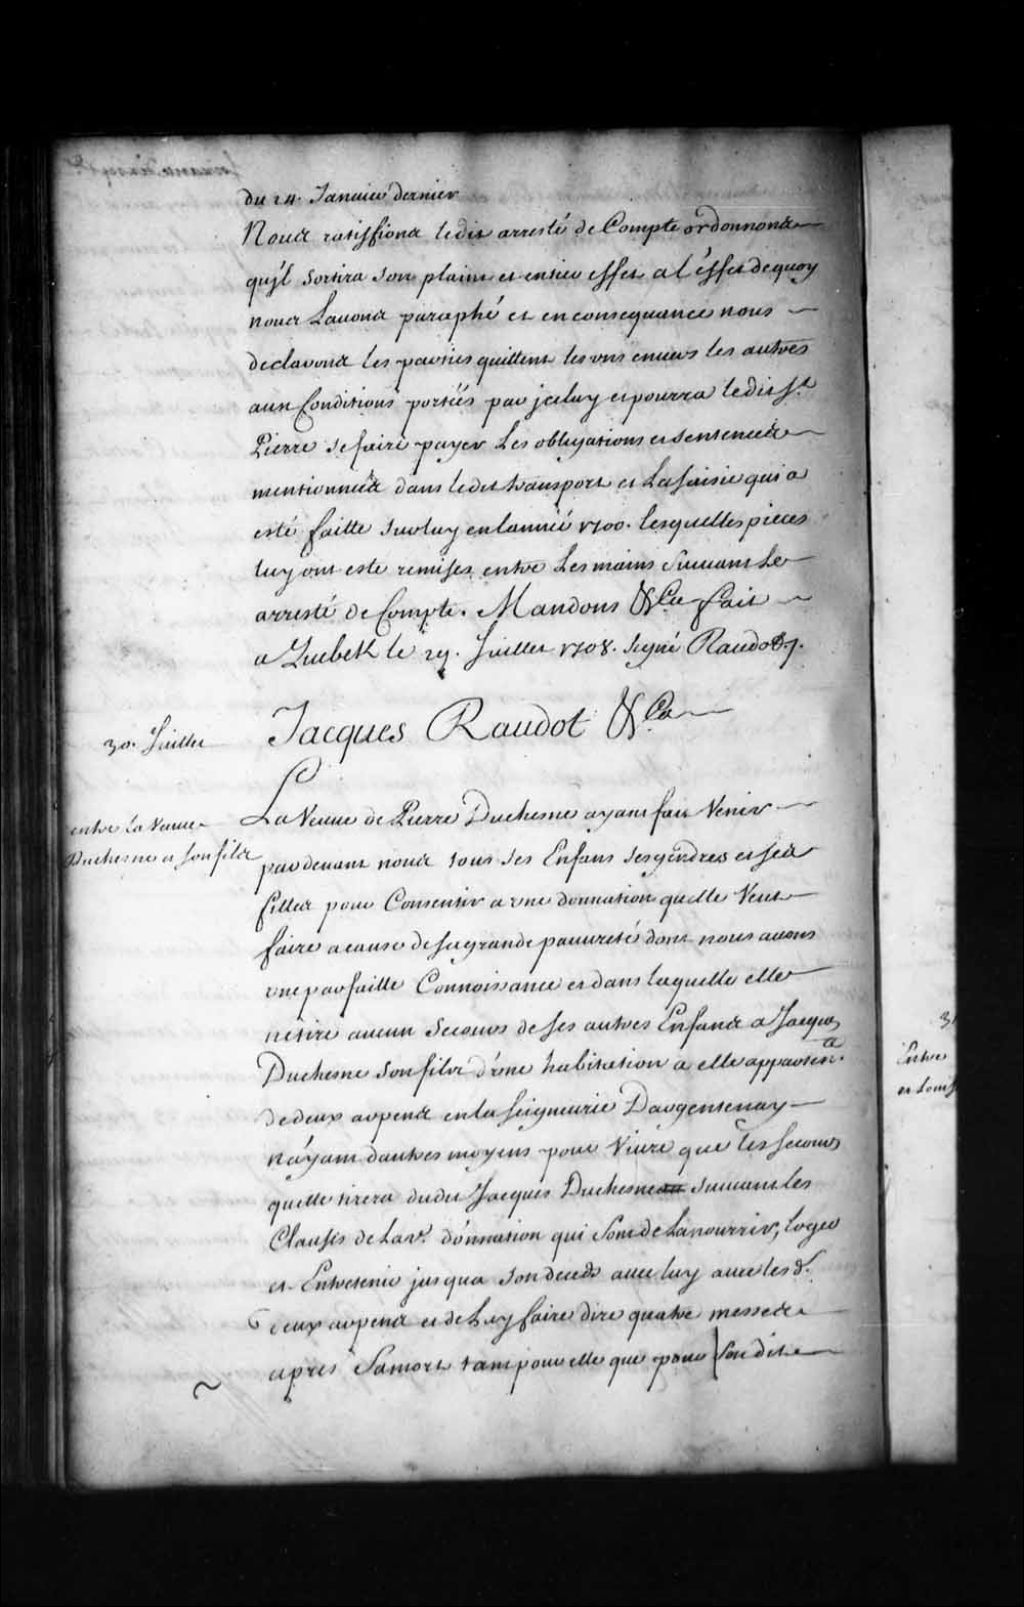 du 24. Janvier dernier
Nous ratiffions ledit arresté de Compte ordonnons
qu'jl sortira son plain et entier effet a l'éffet de quoy
nous Lauons paraphé et en consequance nous
declarons les parties quittent les vns enuers les autres
aux Conditions portées par jceluy et pourra ledit St
Pierre se faire payer Les obligations et sentences
mentionnées dans ledit transport et La saisie qui a
esté faitte sur luy en lannée 1700. lesquelles pieces
luy ont esté remises entre Les mains suiuant Le
arresté de Compte. Mandons &Ca fait
a Quebek le 29. Juillet 1708. signé Raudot.
30. Juillet
Jacques Raudot &Ca
entre la Veuue
Duchesne et son fils
La Veuue de Pierre Duchesne ayant fait Venir
pardeuant nous tous ses Enfans ses gendres et ses
filles pour Consentir a vne donnation quelle Veut
faire a cause de sa grande pauureté dont nous auons
vne parfaitte Connoissance et dans laquelle elle
ne tire aucun secours de ses autres Enfans a Jacques
Duchesne son fils d'vne habitation a elle apparten.te
de deux arpens en la seigneurie Dargentenay
n'áyant dautres moyens pour Viure que les secours
quelle tirera dudit Jacques Duchesne suiuant les
Clauses de lad. donnation qui sont de La nourrir, loger
et Entretenir jusqua son deceds auec luy auec les d.
deux arpens et de Luy faire dire quatre messes
apres sa mort tant pour elle que pour son dit
31
Entre
et Louis